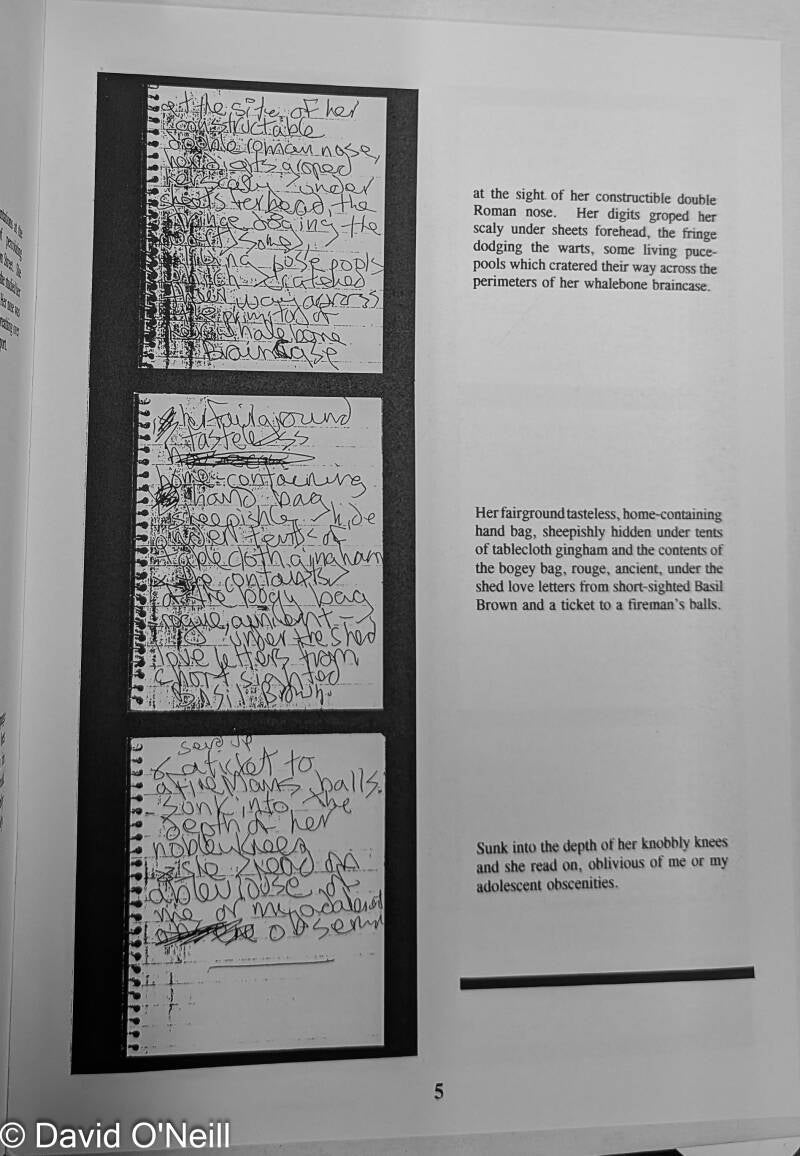 at the site of her
constructable
double roman nose,
her digits groped
scaly under
sheets forhead, the
fringe doging the
warts some
living pose pools
which cratered
their way across
the of
whalebone
Braincase
at the sight of her constructible double
Roman nose. Her digits groped her
scaly under sheets forehead, the fringe
dodging the warts, some living puce-
pools which cratered their way across the
perimeters of her whalebone braincase.
her fairground
tasteless
home-containing
hand bag
sheepishle hide
under tents of
tablecloth gingham
& the contants
of the body bag
under the shed
love letters from
short sighted
Basil Brown.
Her fairground tasteless, home-containing
hand bag, sheepishly hidden under tents
of tablecloth gingham and the contents of
the bogey bag, rouge, ancient, under the
shed love letters from short-sighted Basil
Brown and a ticket to a fireman's balls.
& a ticket to
a fireMans balls.
Sunk into the
depth of her
nobley knees
she read on
of
me or my
obsenn
Sunk into the depth of her knobbly knees
and she read on, oblivious of me or my
adolescent obscenities.
5
© David O'Neill